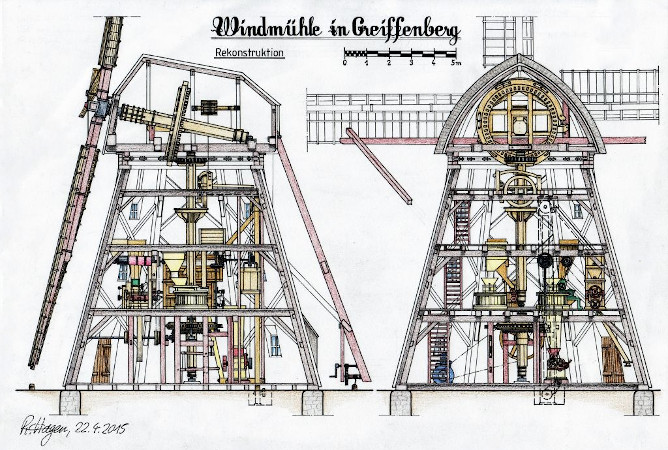 Windmühle in Greiffenberg
Rekonstruktion
0 1 2 3 4 5m
R. Hagen, 22.4.2015